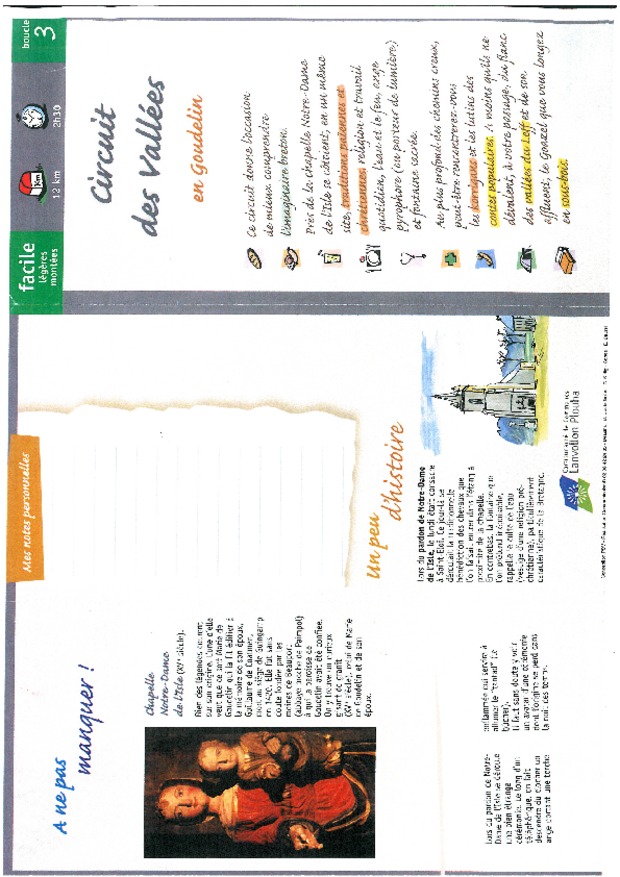 A ne pas
manquer !
Chapelle
Notre-Dame
de-l'Isle (XVe siècle).
sur son origine. L'une d'elle
veut que ce soit Marie de
Gaucelin qui la fit édifier à
la mémoire de son époux,
mort au siège de Guingamp
moines de Beauport
(abbaye proche de Paimpol)
à qui la paroisse de
Goudelin avait été confiée.
On y trouve un curieux
de Goudelin et de son
époux.
Lors du pardon de Notre-
Dame de l'Isle se déroule
une bien étrange
cérémonie. Le long d'un
téléphérique, on fait
descendre du clocher un
ange portant une torche
enflammée qui servira à
allumer le "tantad" (le
bûcher).
Il faut sans doute y voir
un avatar d'une cérémonie
dont l'origine se perd dans
la nuit des temps.
Mes notes personnelles
Un peu
d'histoire
Lors du pardon de Notre-Dame
de l'Isle, le lundi était consacré
à Saint-Eloi. Ce jour-là se
déroulait la traditionnelle
bénédiction des chevaux que
l'on faisait entrer dans l'étang à
proximité de la chapelle.
En contrebas, la fontaine que
l'on prétend inépuisable,
rappelle le culte de l'eau
(vestige d'une religion pré-
chrétienne), particulièrement
caractéristique de la Bretagne.
Communauté de Communes
Lanvollon Plouha
facile
légères
montées
12 km
2h30
boucle
3
Circuit
des Vallées
en Goudelin
Ce circuit donne l'occasion
de mieux comprendre
l'imaginaire breton.
Près de la chapelle Notre-Dame
de l'Isle se côtoient, en un même
site, traditions païennes et
chrétiennes, religion et travail
quotidien, l'eau et le feu, ange
pyrophore (ou porteur de lumière)
et fontaine sacrée.
Au plus profond des chemins creux,
peut-être rencontrerez-vous
les korrigans et les lutins des
contes populaires. A moins qu'ils ne
dévalent, à votre passage, du flanc
des vallées du Leff et de son
affluent, le Goazel que vous longez
en sous-bois.